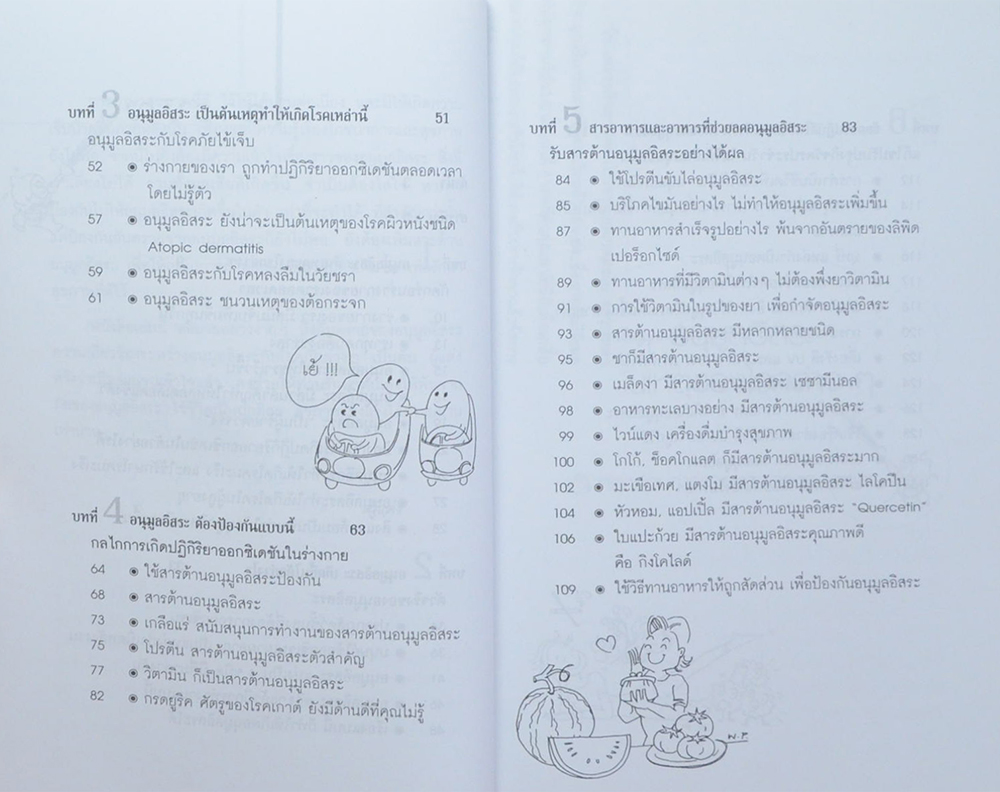 บทที่ 3 อนุมูลอิสระ เป็นต้นเหตุทำให้เกิดโรคเหล่านี้ 51
อนุมูลอิสระกับโรคภัยไข้เจ็บ
52 ร่างกายของเรา ถูกทำปฏิกิริยาออกซิเดชันตลอดเวลา
โดยไม่รู้ตัว
57 อนุมูลอิสระ ยังน่าจะเป็นต้นเหตุของโรคผิวหนังชนิด
Atopic dermatitis
59 อนุมูลอิสระกับโรคหลงลืมในวัยชรา
61 อนุมูลอิสระ ชนวนเหตุของต้อกระจก
เย้ !!!
บทที่ 4 อนุมูลอิสระ ต้องป้องกันแบบนี้ 63
กลไกการเกิดปฏิกิริยาออกซิเดชันในร่างกาย
64 ใช้สารต้านอนุมูลอิสระป้องกัน
68 สารต้านอนุมูลอิสระ
73 เกลือแร่ สนับสนุนการทำงานของสารต้านอนุมูลอิสระ
75 โปรตีน สารต้านอนุมูลอิสระตัวสำคัญ
77 วิตามิน ก็เป็นสารต้านอนุมูลอิสระ
82 กรดยูริค ศัตรูของโรคเกาต์ ยังมีด้านดีที่คุณไม่รู้
บทที่ 5 สารอาหารและอาหารที่ช่วยลดอนุมูลอิสระ 83
รับสารต้านอนุมูลอิสระอย่างได้ผล
84 ใช้โปรตีนขับไล่อนุมูลอิสระ
85 บริโภคไขมันอย่างไร ไม่ทำให้อนุมูลอิสระเพิ่มขึ้น
87 ทานอาหารสำเร็จรูปอย่างไร พ้นจากอันตรายของลิพิด
เปอร็อกไซด์
89 ทานอาหารที่มีวิตามินต่างๆ ไม่ต้องพึ่งยาวิตามิน
91 การใช้วิตามินในรูปของยา เพื่อกำจัดอนุมูลอิสระ
93 สารต้านอนุมูลอิสระ มีหลากหลายชนิด
95 ชาก็มีสารต้านอนุมูลอิสระ
96 เมล็ดงา มีสารต้านอนุมูลอิสระ เซซามีนอล
98 อาหารทะเลบางอย่าง มีสารต้านอนุมูลอิสระ
99 ไวน์แดง เครื่องดื่มบำรุงสุขภาพ
100 โกโก้, ช็อคโกแลต ก็มีสารต้านอนุมูลอิสระมาก
102 มะเขือเทศ, แตงโม มีสารต้านอนุมูลอิสระ ไลโคปีน
104 หัวหอม, แอปเปิ้ล มีสารต้านอนุมูลอิสระ "Quercetin"
106 ใบแปะก๊วย มีสารต้านอนุมูลอิสระคุณภาพดี
คือ กิงโคไลด์
109 ใช้วิธีทานอาหารให้ถูกสัดส่วน เพื่อป้องกันอนุมูลอิสระ
W.P.